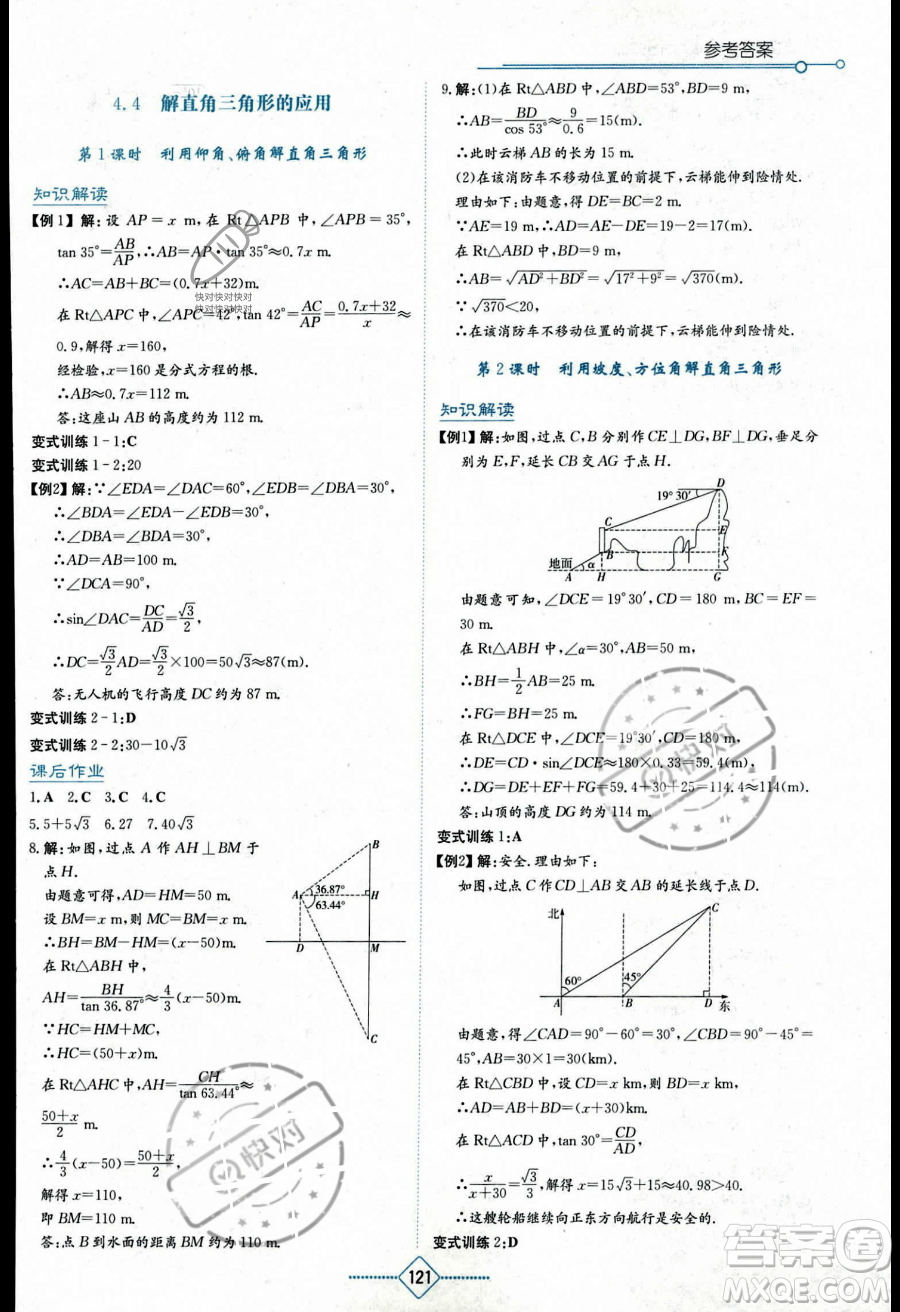 参考答案
4.4 解直角三角形的应用
第1课时 利用仰角、俯角解直角三角形
知识解读
【例1】解:设 AP=x m,在 Rt△APB 中,∠APB=35°,
tan 35°=AB/AP,∴AB=AP·tan 35°≈0.7x(m).
∴AC=AB+BC=(0.7x+32)m.
在 Rt△APC 中,∠APC=42°,tan 42°=AC/AP=(0.7x+32)/x≈
0.9,解得 x=160,
经检验,x=160 是分式方程的根.
∴AB≈0.7x=112 m.
答:这座山 AB 的高度约为 112 m.
变式训练 1-1:C
变式训练 1-2:20
【例2】解:∵∠EDA=∠DAC=60°,∠EDB=∠DBA=30°,
∴∠BDA=∠EDA-∠EDB=30°.
∴∠DBA=∠BDA=30°.
∴AD=AB=100 m.
∵∠DCA=90°,
∴sin∠DAC=DC/AD=√3/2,
∴DC=√3/2 AD=√3/2×100=50√3≈87(m).
答:无人机的飞行高度 DC 约为 87 m.
变式训练 2-1:D
变式训练 2-2:30-10√3
课后作业
1.A 2.C 3.C 4.C
5.5+5√3 6.27 7.40√3
8.解:如图,过点 A 作 AH⊥BM 于
点 H.
由题意可得,AD=HM=50 m.
设 BM=x m,则 MC=BM=x m.
∴BH=BM-HM=(x-50)m.
在 Rt△ABH 中,
AH=BH/tan 36.87°≈4/3(x-50)m.
∵HC=HM+MC,
∴HC=(50+x)m.
在 Rt△AHC 中,AH=CH/tan 63.44°≈
(50+x)/2 m.
∴4/3(x-50)=(50+x)/2,
解得 x=110,
即 BM=110 m.
答:点 B 到水面的距离 BM 约为 110 m.
B
A
36.87°
63.44°
H
D
M
C
9.解:(1)在 Rt△ABD 中,∠ABD=53°,BD=9 m,
∴AB=BD/cos 53°≈9/0.6=15(m).
∴此时云梯 AB 的长为 15 m.
(2)在该消防车不移动位置的前提下,云梯能伸到险情处.
理由如下:由题意,得 DE=BC=2 m.
∵AE=19 m,∴AD=AE-DE=19-2=17(m).
在 Rt△ABD 中,BD=9 m,
∴AB=√(AD²+BD²)=√(17²+9²)=√370(m).
∵√370<20,
∴在该消防车不移动位置的前提下,云梯能伸到险情处.
第2课时 利用坡度、方位角解直角三角形
知识解读
【例1】解:如图,过点 C,B 分别作 CE⊥DG,BF⊥DG,垂足分
别为 E,F,延长 CB 交 AG 于点 H.
D
19°30′
C
E
B
F
地面
α
A
H
G
由题意可知,∠DCE=19°30′,CD=180 m,BC=EF=
30 m.
在 Rt△ABH 中,∠α=30°,AB=50 m,
∴BH=1/2 AB=25 m.
∴FG=BH=25 m.
在 Rt△DCE 中,∠DCE=19°30′,CD=180 m,
∴DE=CD·sin∠DCE≈180×0.33=59.4(m).
∴DG=DE+EF+FG=59.4+30+25=114.4≈114(m).
答:山顶的高度 DG 约为 114 m.
变式训练 1:A
【例2】解:安全.理由如下:
如图,过点 C 作 CD⊥AB 交 AB 的延长线于点 D.
北
C
60°
45°
A
B
D
东
由题意,得∠CAD=90°-60°=30°,∠CBD=90°-
45°=45°,AB=30×1=30(km).
在 Rt△CBD 中,设 CD=BD=x km,则 AD=(x+30)km.
在 Rt△ACD 中,tan 30°=CD/AD,
∴x/(x+30)=√3/3,解得 x=15√3+15≈40.98>40.
∴这艘轮船继续向正东方向航行是安全的.
变式训练 2:D
121
快对快对快对
快对快对快对
快对
快对
答案圈
MXQE.COM